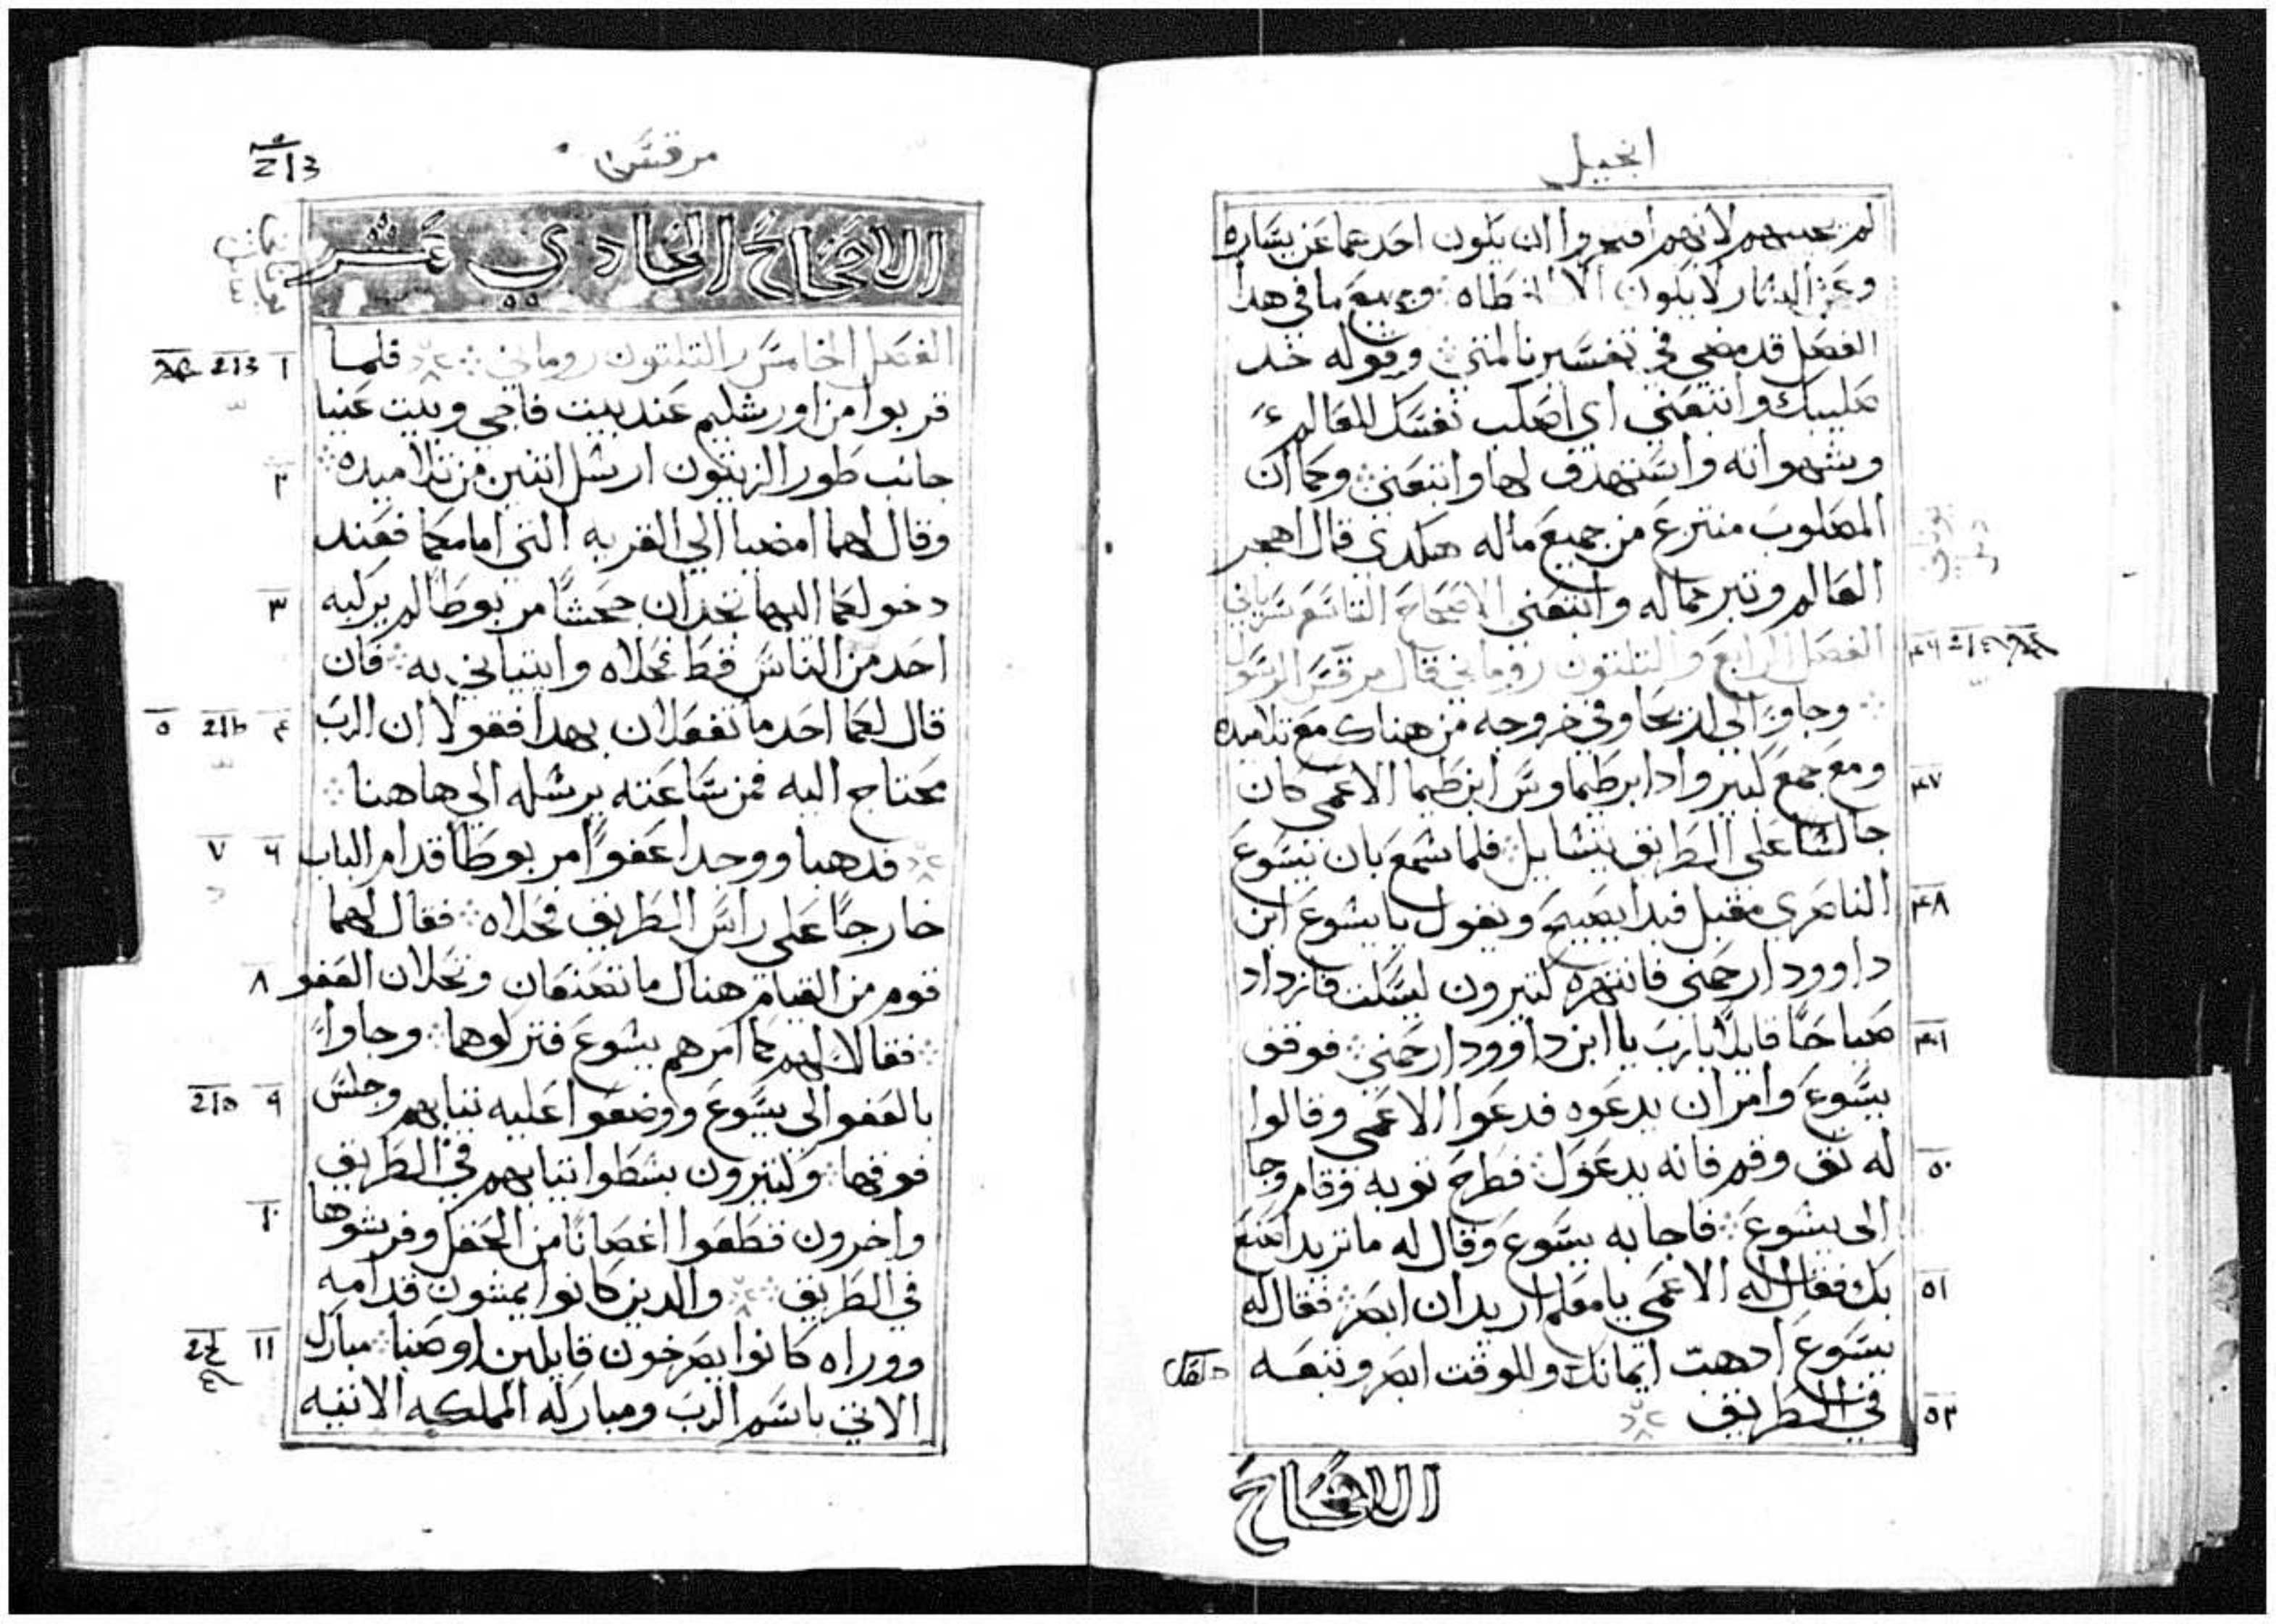 انجيل
لم يجيبهم لانهم افتكروا ان يكون احدهما عن يساره
وعن اليسار لا يكون الا وجميع ما في هدا
الفصل قد مضى في تفسيرنا لمتى وقوله خد
صليبك واتبعني اي اصلب نفسك للعالم
وشهواته واستهدف لها واتبعني وكما ان
المصلوب منتزع من جميع ماله هكدى قال اهجر
العالم وتبر مماله واتبعني الاصحاح التاسع سرياني
الفصل الرابع والتلتون روماني قال مرقس الرسول
وجاوا الى اريحا وفي خروجه من هناك مع تلاميده
ومع جمع كتير وادا برطيماوس ابن طيما الاعمى كان
جالسا على الطريق يتسايل فلما سمع بان يسوع
الناصري مقبل فبدا يصيح ويقول يا يسوع ابن
داوود ارحمني فانتهره كتيرون ليسكت فازداد
صياحا قايلا يا رب يا ابن داوود ارحمني فوقف
يسوع وامر ان يدعوه فدعوا الاعمى وقالوا
له تق وقم فانه يدعوك فطرح توبه وقام وجا
الى يسوع فاجابه يسوع وقال له ما تريد اصنع
بك فقال له الاعمى يا معلم اريد ان ابصر فقال له
يسوع ادهب ايمانك وللوقت ابصر وتبعه
في الطريق
الاصحاح
مرقس
الاصحاح الحادي عشر
الفصل الخامس والتلتون روماني فلما
قربوا من اورشليم عند بيت فاجي وبيت عنيا
جانب طور الزيتون ارسل اتنين من تلاميده
وقال لهما امضيا الى القريه التي امامكما فعند
دخولكما اليها تجدان جحشا مربوطا لم يركبه
احد من الناس قط فحلاه وايتياني به فان
قال لكما احد ما تفعلان بهدا فقولا ان الرب
محتاج اليه فمن ساعته يرسله الى هاهنا
فدهبا ووجدا عفوا مربوطا قدام الباب
خارجا على راس الطريق فحلاه فقال لهما
قوم من القيام هناك ما تصنعان وتحلان العفو
فقالا لهم كما امرهم يسوع فتركوهما وجاوا
بالعفو الى يسوع ووضعوا عليه تيابهم وجلس
فوقها وكتيرون بسطوا تيابهم في الطريق
واخرون قطعوا اغصانا من الحقل وفرشوها
في الطريق والدين كانوا يمشون قدامه
ووراه كانوا يصرخون قايلين اوصنا مبارك
الاتي باسم الرب ومباركه المملكه الاتيه